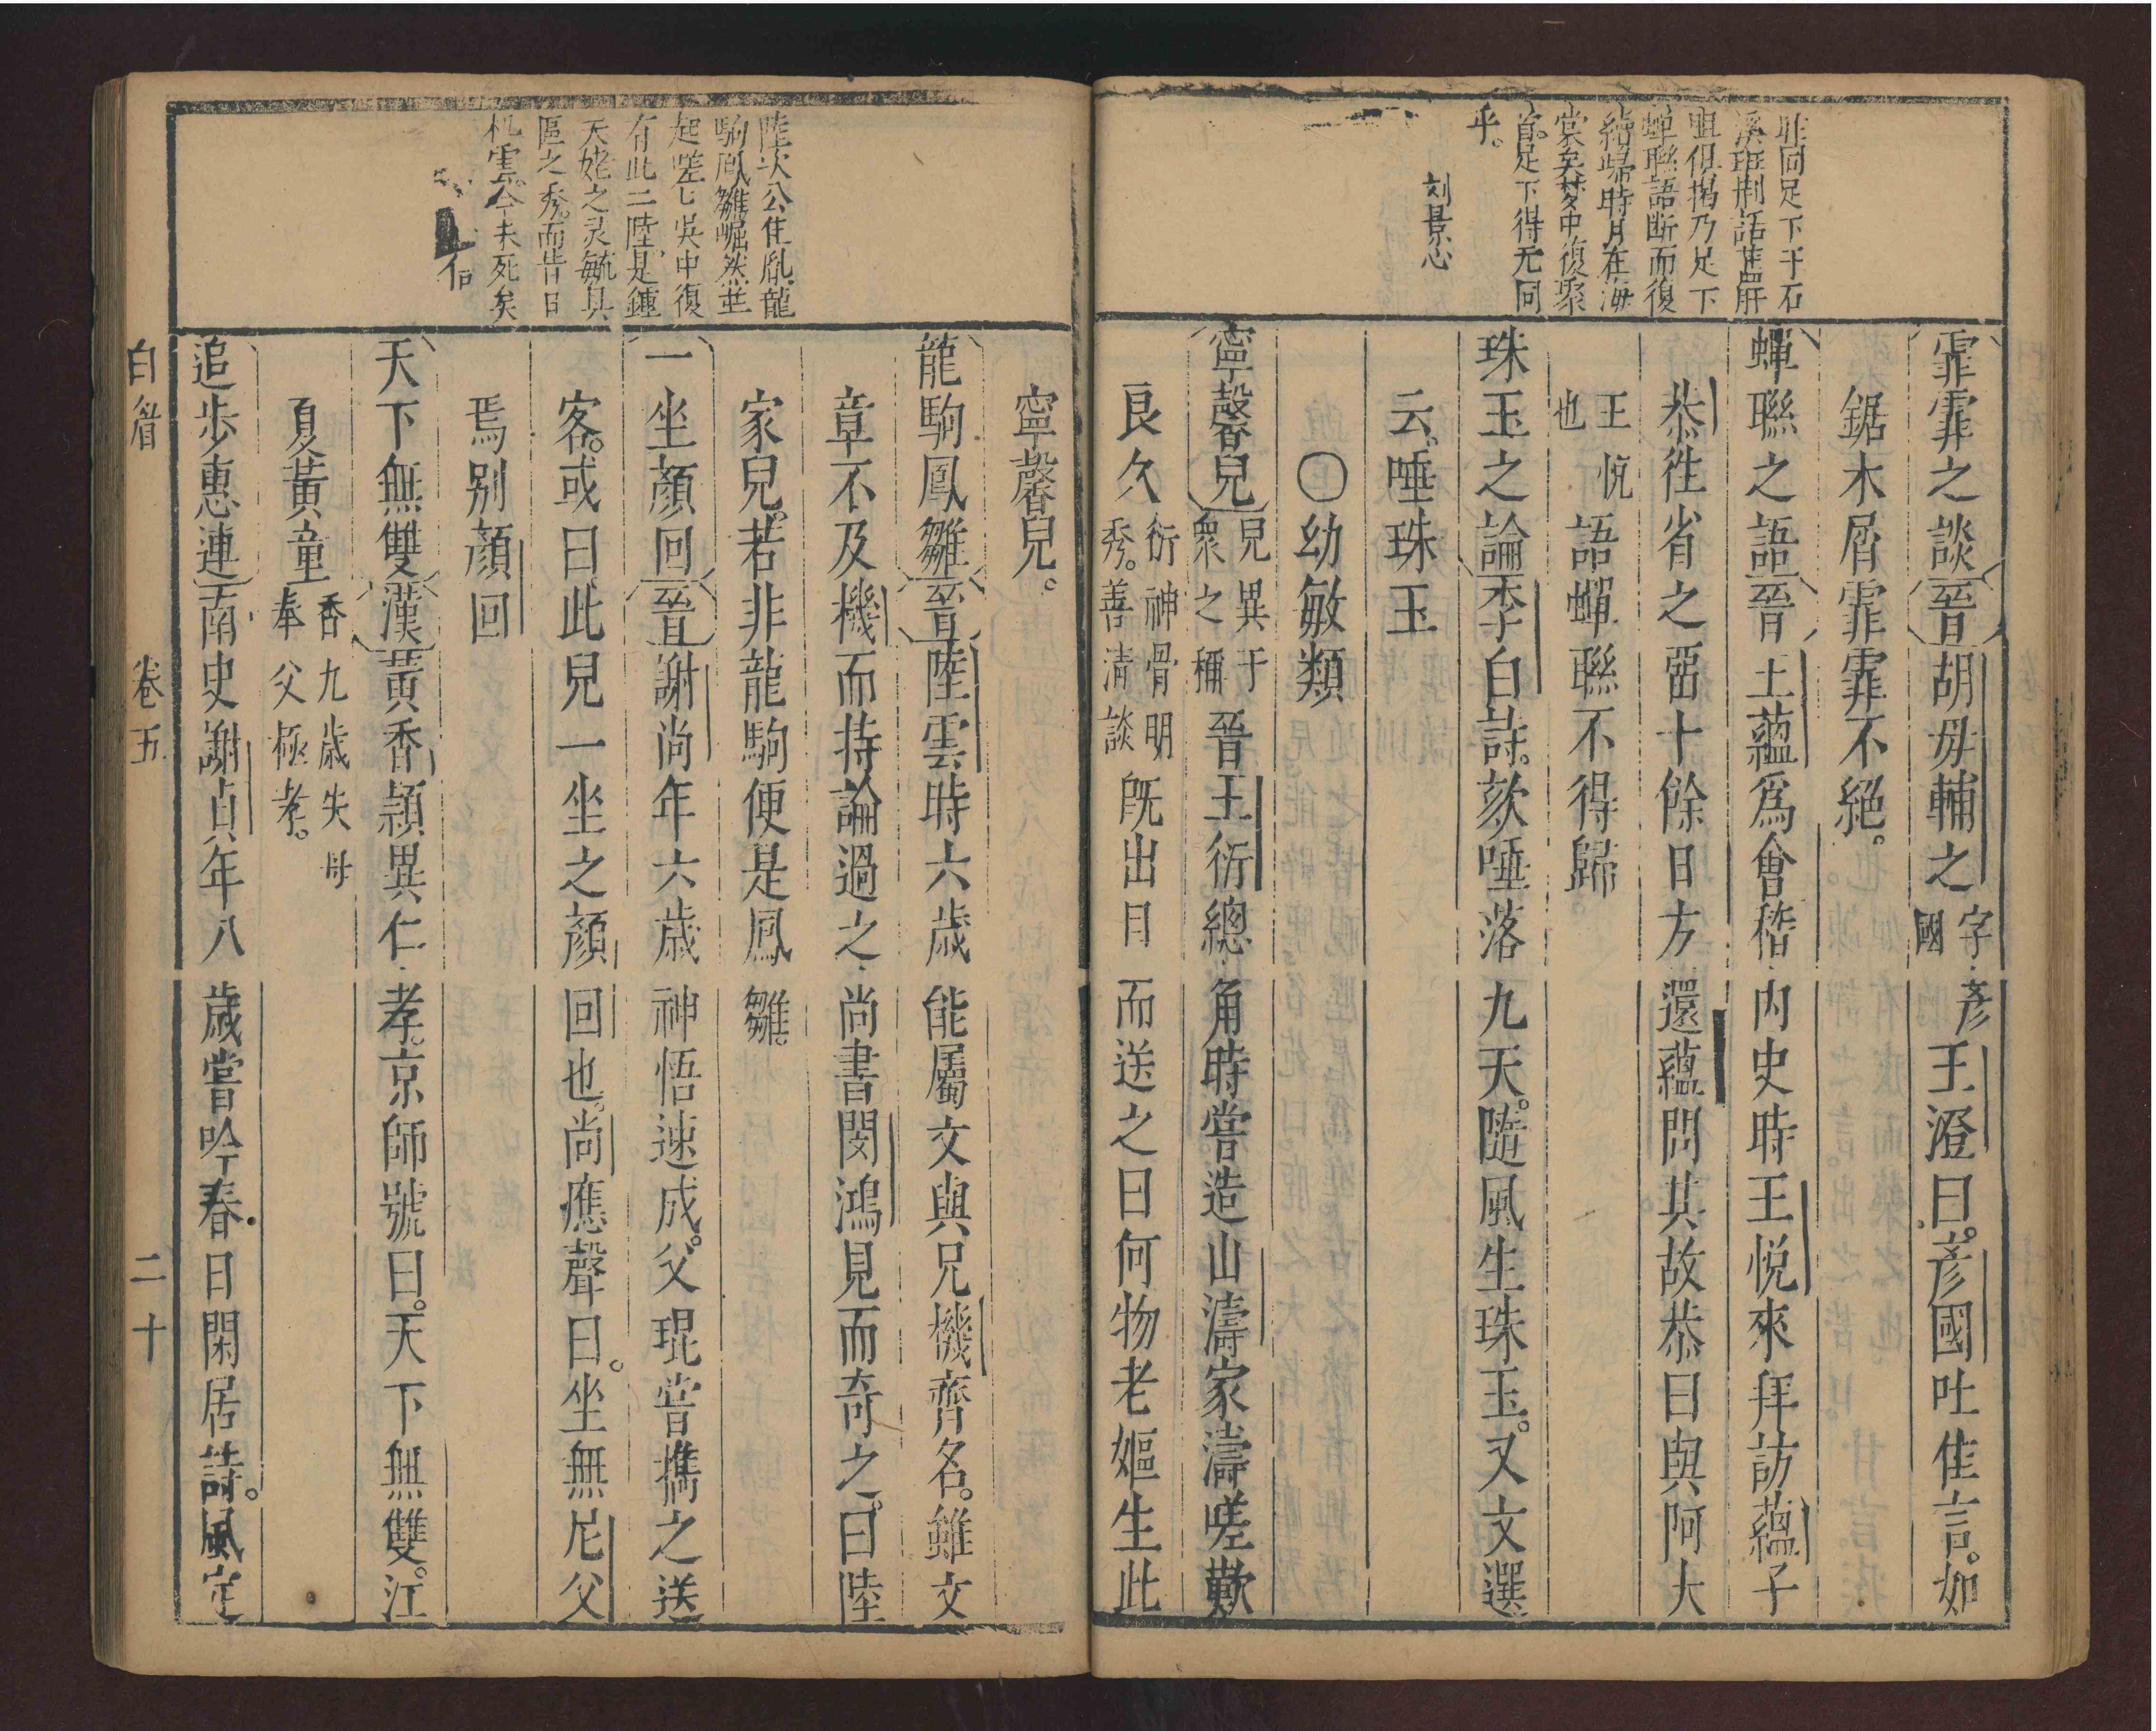 乎。
霏霏之談晉胡毋輔之字彥國王澄曰。彥國吐佳言。如
鋸木屑霏霏不絕。
蟬聯之語晉王蘊爲會稽內史時王悅來拜訪蘊子
恭徃省之留十餘日方還蘊問其故恭曰與阿大
王悅也語蟬聯不得歸
珠玉之論李白詩。欬唾落九天。隨風生珠玉。又文選
云。唾珠玉
〇幼敏類
寧馨兒見異于衆之稱晉王衍總角時嘗造山濤家濤嗟歎
良久衍神骨明秀。善清談旣出日而送之曰何物老嫗生此
陸次公佳胤。龍
駒鳳雛崛然並
起嗟乜吳中復
有此二陸是鍾
天姥之灵毓具
區之秀。而昔日
机雲今未死矣
寧馨兒。
龍駒鳳雛晉陸雲時六歲能屬文與兄機齊名。雖文
章不及機而持論過之尚書閔鴻見而奇之。曰陸
家兒。若非龍駒便是鳳雛。
一坐顏回晉謝尚年六歲神悟速成。父琨嘗攜之送
客。或曰此兒一坐之顏回也。尚應聲曰。坐無尼父
焉别顏回
天下無雙漢黃香穎異仁孝。京師號曰。天下無雙。江
夏黃童香九歲失母奉父極孝。
追步惠連南史謝貞年八歲嘗吟春日閑居詩。風定
白眉 卷五 二十